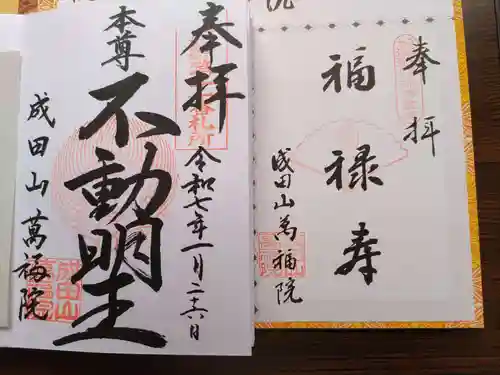 奉拝
令和七年一月二十六日
本尊
不動明王
成田山萬福院
奉拝
福禄寿
成田山萬福院